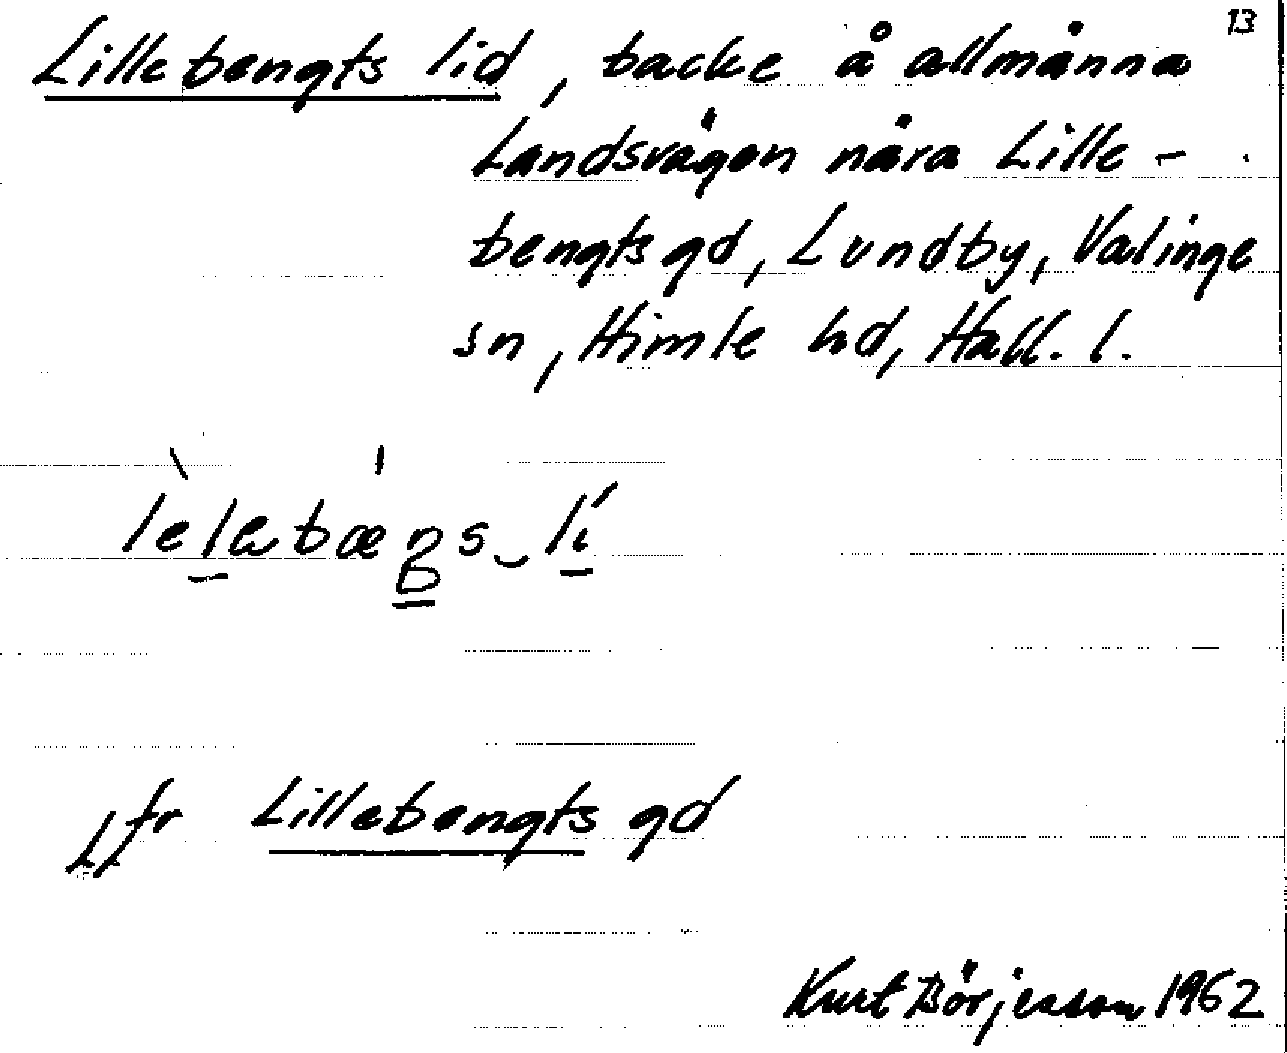 13
Lillebengts lid, backe å allmänna
Landsvägen nära Lille-
bengtsgd, Lundby, Valinge
sn, Himle hd, Hall. l.
Jfr Lillebengts gd
Kurt Börjesson 1962